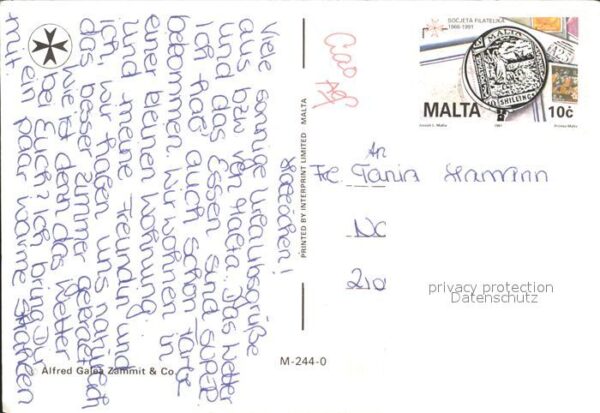 Haeschen!
Viele sonnige Urlaubsgrüße
aus bzw. von Malta. Das Wetter
und das Essen sind super.
Ich hab' auch schon
bekommen. Wir wohnen in
einer kleinen Wohnung
und meine Freundin und
ich, wir haben uns natürlich
das besser Zimmer
wie ist denn das Wetter
bei Euch? Ich bring Dir
mit ein paar warme Strahlen
Alfred Galea Zammit & Co.
M-244-0
PRINTED BY INTERPRINT LIMITED MALTA
SOCJETA FILATELIKA
1966-1991
MALTA
SHILLING
MALTA 10c
1991
Printex Malta
An
Tania Hamann
privacy protection
Datenschutz